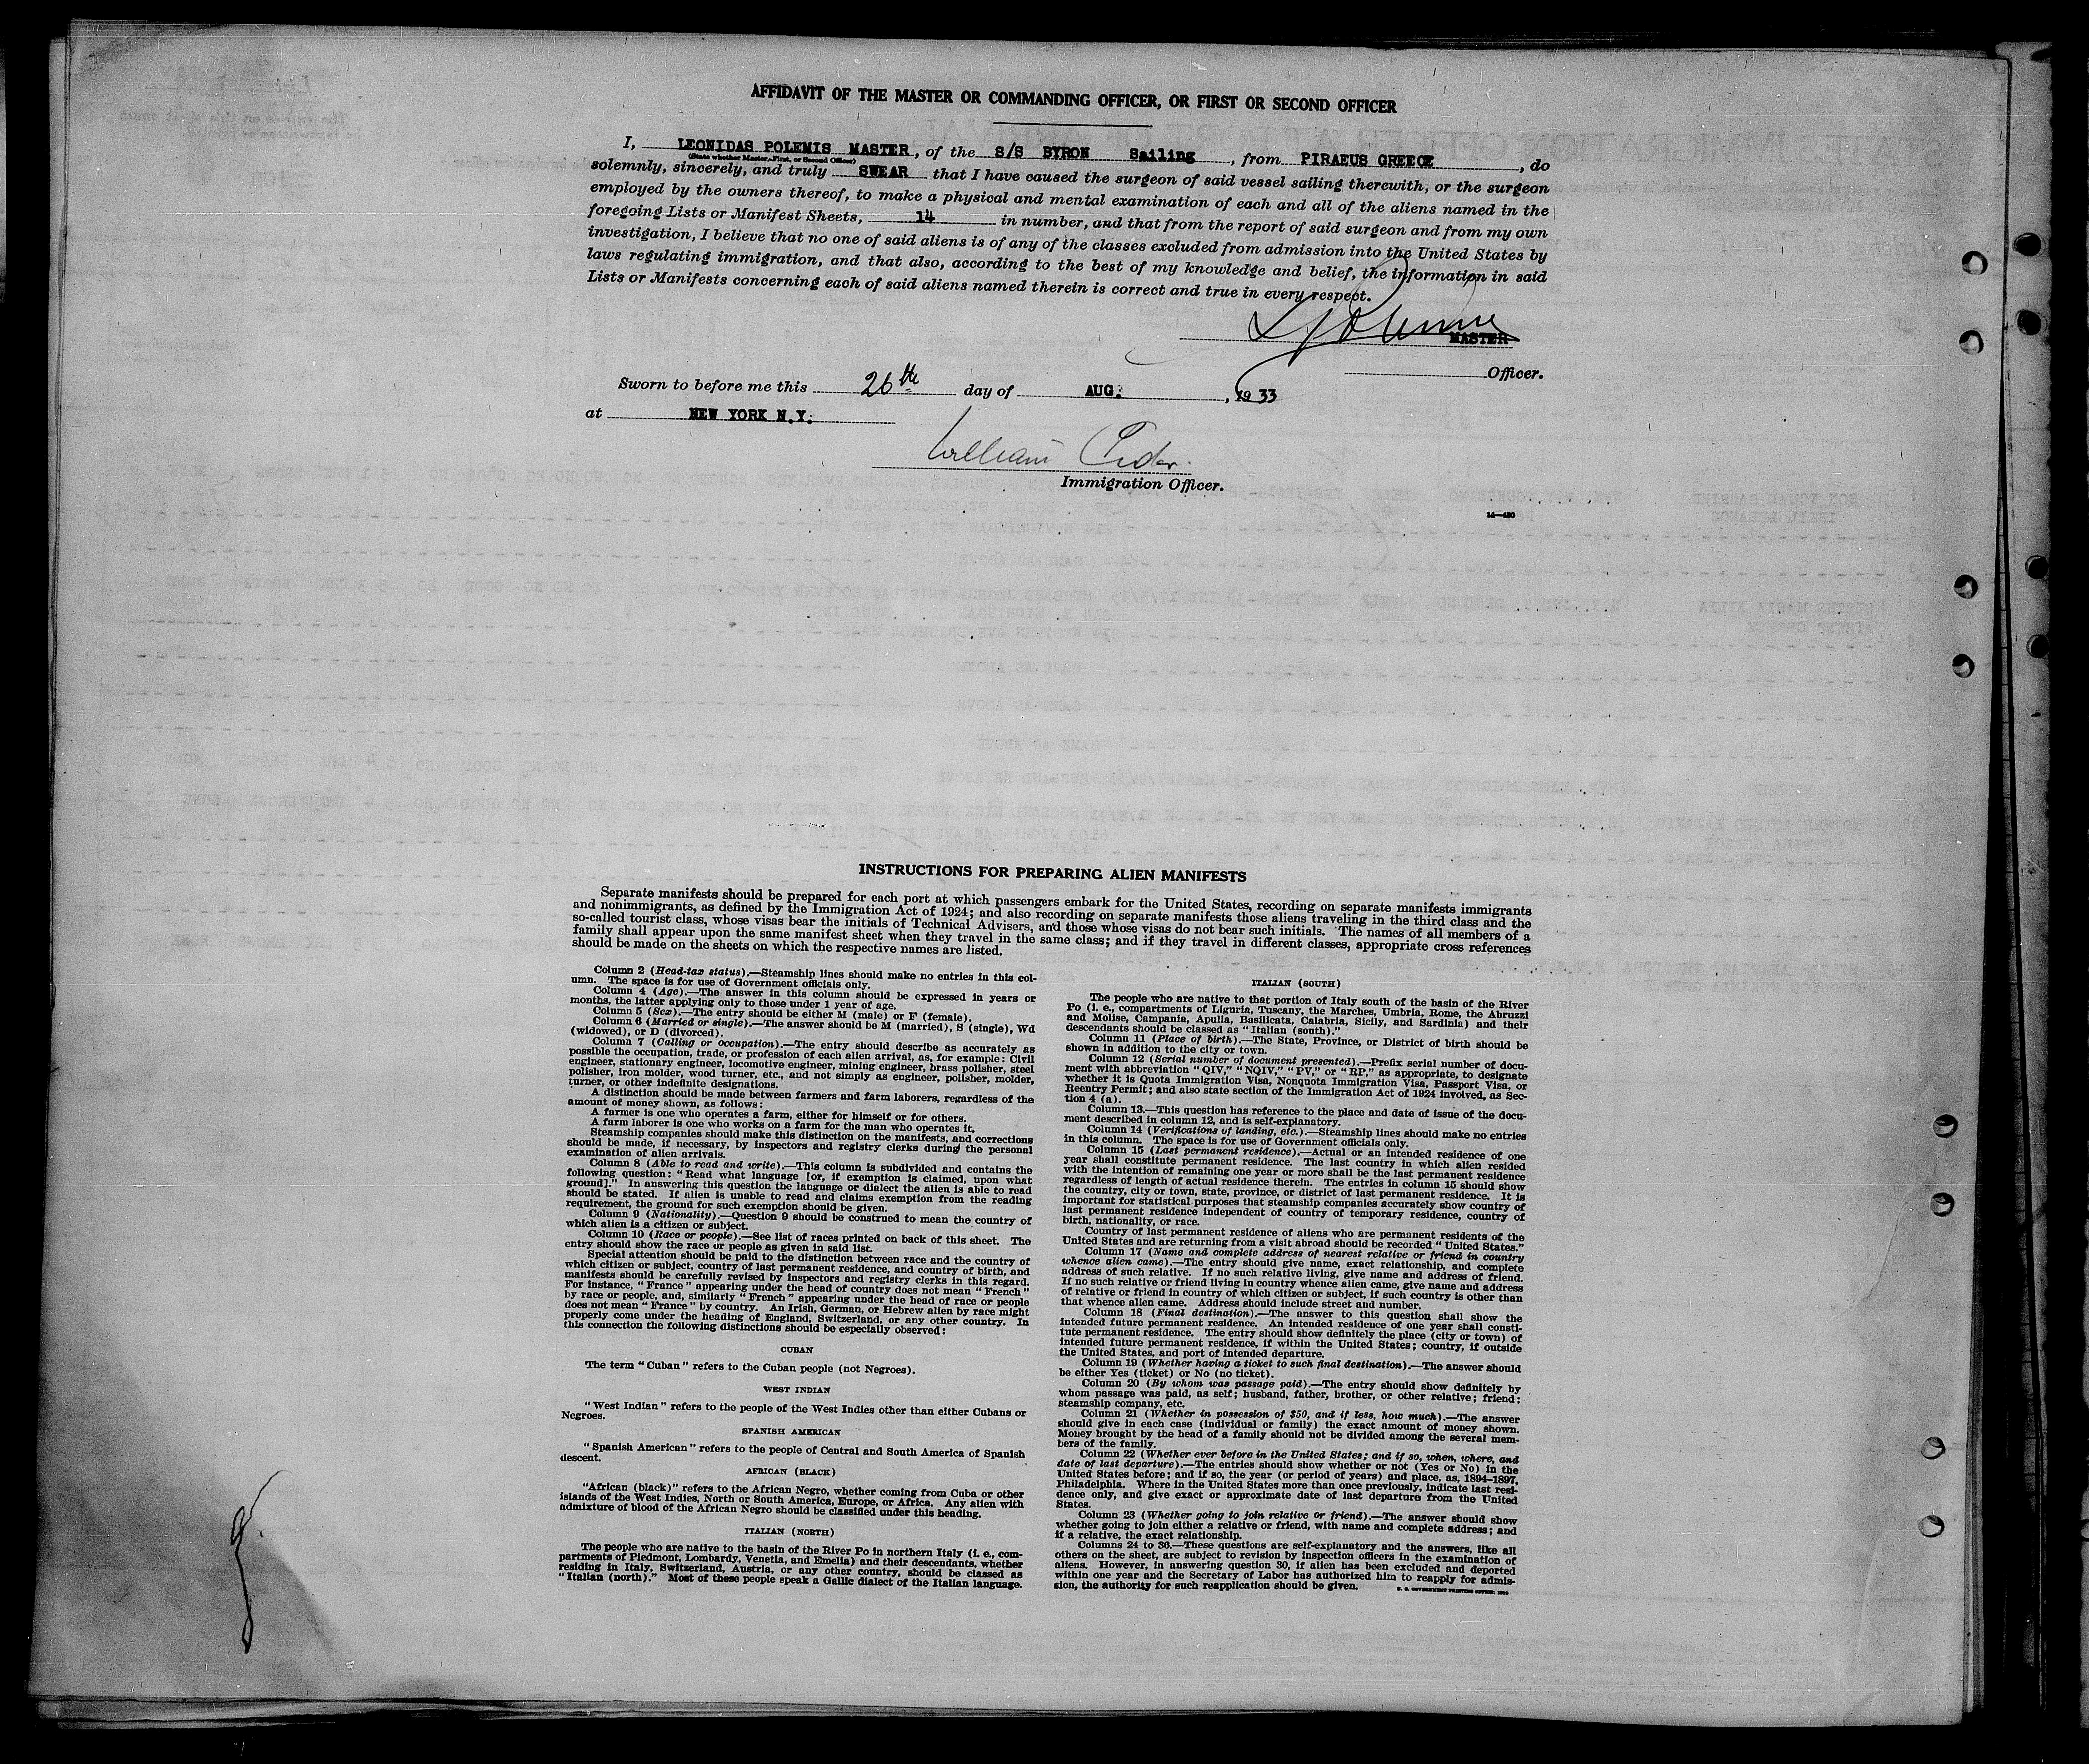 AFFIDAVIT OF THE MASTER OR COMMANDING OFFICER, OR FIRST OR SECOND OFFICER
I, LEONIDAS POLEMIS MASTER, of the S/S BYRON Sailing, from PIRAEUS GREECE, do
(State whether Master, First, or Second Officer)
solemnly, sincerely, and truly SWEAR that I have caused the surgeon of said vessel sailing therewith, or the surgeon
employed by the owners thereof, to make a physical and mental examination of each and all of the aliens named in the
foregoing Lists or Manifest Sheets, 14 in number, and that from the report of said surgeon and from my own
investigation, I believe that no one of said aliens is of any of the classes excluded from admission into the United States by
laws regulating immigration, and that also, according to the best of my knowledge and belief, the information in said
Lists or Manifests concerning each of said aliens named therein is correct and true in every respect.
MASTER
Officer.
Sworn to before me this 26th day of AUG., 1933
at NEW YORK N.Y.
William
Immigration Officer.
14—430
INSTRUCTIONS FOR PREPARING ALIEN MANIFESTS
Separate manifests should be prepared for each port at which passengers embark for the United States, recording on separate manifests immigrants
and nonimmigrants, as defined by the Immigration Act of 1924; and also recording on separate manifests those aliens traveling in the third class and the
so-called tourist class, whose visas bear the initials of Technical Advisers, and those whose visas do not bear such initials. The names of all members of a
family shall appear upon the same manifest sheet when they travel in the same class; and if they travel in different classes, appropriate cross references
should be made on the sheets on which the respective names are listed.
Column 2 (Head-tax status).—Steamship lines should make no entries in this col-
umn. The space is for use of Government officials only.
Column 4 (Age).—The answer in this column should be expressed in years or
months, the latter applying only to those under 1 year of age.
Column 5 (Sex).—The entry should be either M (male) or F (female).
Column 6 (Married or single).—The answer should be M (married), S (single), Wd
(widowed), or D (divorced).
Column 7 (Calling or occupation).—The entry should describe as accurately as
possible the occupation, trade, or profession of each alien arrival, as, for example: Civil
engineer, stationary engineer, locomotive engineer, mining engineer, brass polisher, steel
polisher, iron molder, wood turner, etc., and not simply as engineer, polisher, molder,
turner, or other indefinite designations.
A distinction should be made between farmers and farm laborers, regardless of the
amount of money shown, as follows:
A farmer is one who operates a farm, either for himself or for others.
A farm laborer is one who works on a farm for the man who operates it.
Steamship companies should make this distinction on the manifests, and corrections
should be made, if necessary, by inspectors and registry clerks during the personal
examination of alien arrivals.
Column 8 (Able to read and write).—This column is subdivided and contains the
following question: "Read what language [or, if exemption is claimed, upon what
ground]." In answering this question the language or dialect the alien is able to read
should be stated. If alien is unable to read and claims exemption from the reading
requirement, the ground for such exemption should be given.
Column 9 (Nationality).—Question 9 should be construed to mean the country of
which alien is a citizen or subject.
Column 10 (Race or people).—See list of races printed on back of this sheet. The
entry should show the race or people as given in said list.
Special attention should be paid to the distinction between race and the country of
which citizen or subject, country of last permanent residence, and country of birth, and
manifests should be carefully revised by inspectors and registry clerks in this regard.
For instance, "France" appearing under the head of country does not mean "French"
by race or people, and, similarly "French" appearing under the head of race or people
does not mean "France" by country. An Irish, German, or Hebrew alien by race might
properly come under the heading of England, Switzerland, or any other country. In
this connection the following distinctions should be especially observed:
CUBAN
The term "Cuban" refers to the Cuban people (not Negroes).
WEST INDIAN
"West Indian" refers to the people of the West Indies other than either Cubans or
Negroes.
SPANISH AMERICAN
"Spanish American" refers to the people of Central and South America of Spanish
descent.
AFRICAN (BLACK)
"African (black)" refers to the African Negro, whether coming from Cuba or other
islands of the West Indies, North or South America, Europe, or Africa. Any alien with
admixture of blood of the African Negro should be classified under this heading.
ITALIAN (NORTH)
The people who are native to the basin of the River Po in northern Italy (i. e., com-
partments of Piedmont, Lombardy, Venetia, and Emelia) and their descendants, whether
residing in Italy, Switzerland, Austria, or any other country, should be classed as
"Italian (north)." Most of these people speak a Gallic dialect of the Italian language.
ITALIAN (SOUTH)
The people who are native to that portion of Italy south of the basin of the River
Po (i. e., compartments of Liguria, Tuscany, the Marches, Umbria, Rome, the Abruzzi
and Molise, Campania, Apulia, Basilicata, Calabria, Sicily, and Sardinia) and their
descendants should be classed as "Italian (south)."
Column 11 (Place of birth).—The State, Province, or District of birth should be
shown in addition to the city or town.
Column 12 (Serial number of document presented).—Prefix serial number of docu-
ment with abbreviation "QIV," "NQIV," "PV," or "RP," as appropriate, to designate
whether it is Quota Immigration Visa, Nonquota Immigration Visa, Passport Visa, or
Reentry Permit; and also state section of the Immigration Act of 1924 involved, as Sec-
tion 4 (a).
Column 13.—This question has reference to the place and date of issue of the docu-
ment described in column 12, and is self-explanatory.
Column 14 (Verifications of landing, etc.).—Steamship lines should make no entries
in this column. The space is for use of Government officials only.
Column 15 (Last permanent residence).—Actual or an intended residence of one
year shall constitute permanent residence. The last country in which alien resided
with the intention of remaining one year or more shall be the last permanent residence
regardless of length of actual residence therein. The entries in column 15 should show
the country, city or town, state, province, or district of last permanent residence. It is
important for statistical purposes that steamship companies accurately show country of
last permanent residence independent of country of temporary residence, country of
birth, nationality, or race.
Country of last permanent residence of aliens who are permanent residents of the
United States and are returning from a visit abroad should be recorded "United States."
Column 17 (Name and complete address of nearest relative or friend in country
whence alien came).—The entry should give name, exact relationship, and complete
address of such relative. If no such relative living, give name and address of friend.
If no such relative or friend living in country whence alien came, give name and address
of relative or friend in country of which citizen or subject, if such country is other than
that whence alien came. Address should include street and number.
Column 18 (Final destination).—The answer to this question shall show the
intended future permanent residence. An intended residence of one year shall consti-
tute permanent residence. The entry should show definitely the place (city or town) of
intended future permanent residence, if within the United States; country, if outside
the United States, and port of intended departure.
Column 19 (Whether having a ticket to such final destination).—The answer should
be either Yes (ticket) or No (no ticket).
Column 20 (By whom was passage paid).—The entry should show definitely by
whom passage was paid, as self; husband, father, brother, or other relative; friend;
steamship company, etc.
Column 21 (Whether in possession of $50, and if less, how much).—The answer
should give in each case (individual or family) the exact amount of money shown.
Money brought by the head of a family should not be divided among the several mem-
bers of the family.
Column 22 (Whether ever before in the United States; and if so, when, where, and
date of last departure).—The entries should show whether or not (Yes or No) in the
United States before; and if so, the year (or period of years) and place, as, 1894–1897,
Philadelphia. Where in the United States more than once previously, indicate last resi-
dence only, and give exact or approximate date of last departure from the United
States.
Column 23 (Whether going to join relative or friend).—The answer should show
whether going to join either a relative or friend, with name and complete address; and
if a relative, the exact relationship.
Columns 24 to 36.—These questions are self-explanatory and the answers, like all
others on the sheet, are subject to revision by inspection officers in the examination of
aliens. However, in answering question 30, if alien has been excluded and deported
within one year and the Secretary of Labor has authorized him to reapply for admis-
sion, the authority for such reapplication should be given.